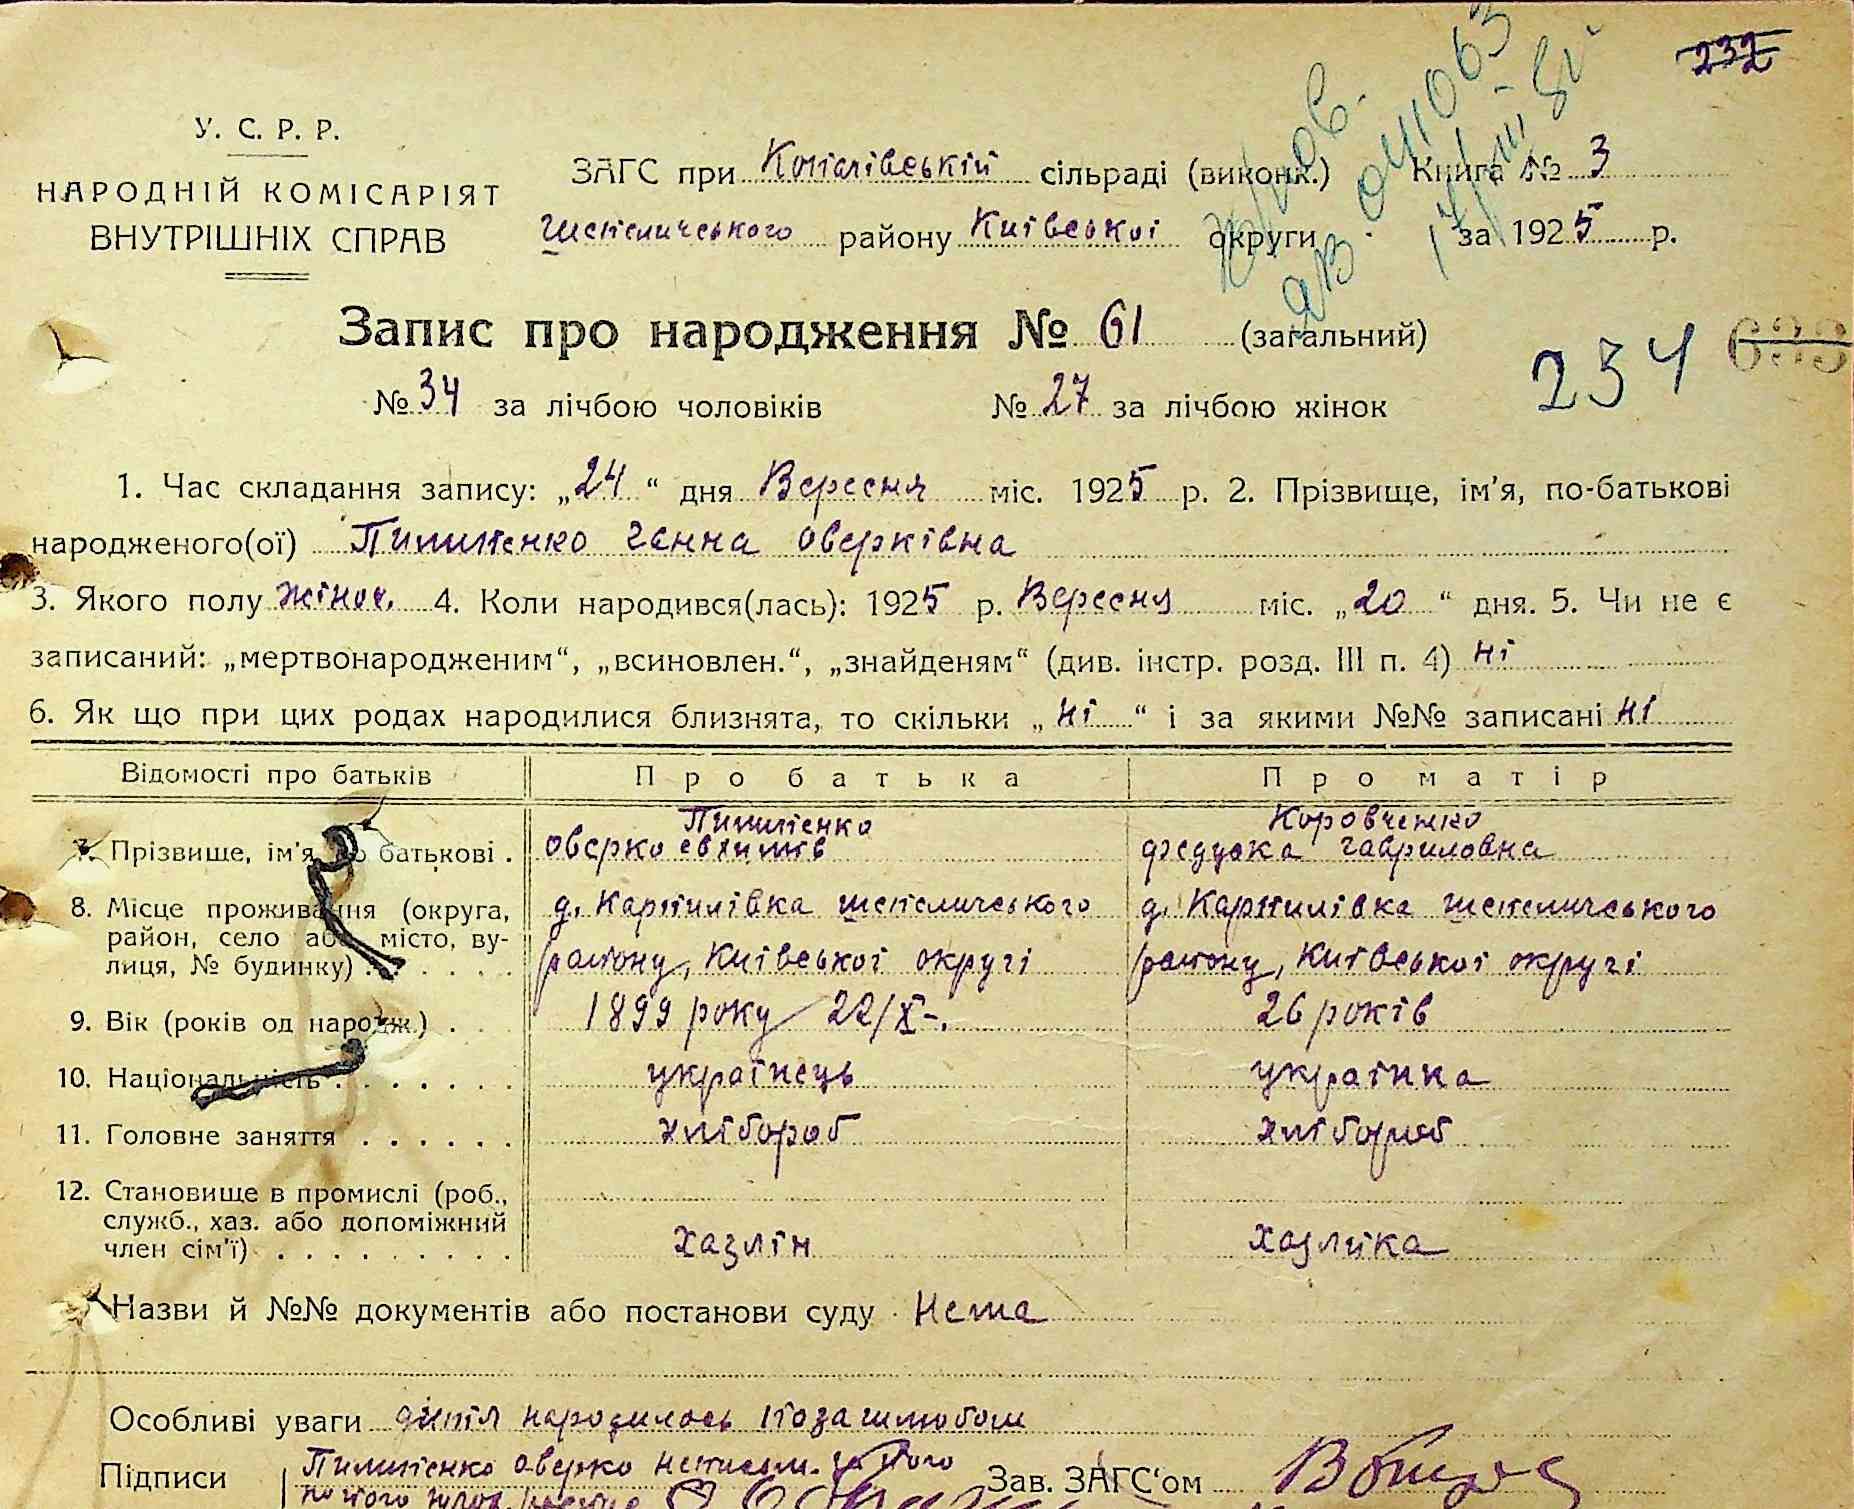 232
У. С. Р. Р.
НАРОДНІЙ КОМІСАРІЯТ
ВНУТРІШНІХ СПРАВ
ЗАГС при Копачівській сільраді (виконк.) Книга № 3
Шепеличського району Київської округи за 1925 р.
Запис про народження № 61 (загальний)
234
№ 34 за лічбою чоловіків № 27 за лічбою жінок
1. Час складання запису: „24“ дня Вересня міс. 1925 р. 2. Прізвище, ім'я, по-батькові
народженого(ої) Пилипенко Ганна Оверківна
3. Якого полу жіноч. 4. Коли народився(лась): 1925 р. Вересня міс. „20“ дня. 5. Чи не є
записаний: „мертвонародженим“, „всиновлен.“, „знайденям“ (див. інстр. розд. III п. 4) ні
6. Як що при цих родах народилися близнята, то скільки „ні“ і за якими №№ записані ні
Відомості про батьків Про батька Про матір
Пилипенко Коровченко
7. Прізвище, ім'я по батькові . Оверко Євхимів Федуска Гавриловна
8. Місце проживання (округа, д. Карпилівка Шепеличського д. Карпилівка Шепеличського
район, село або місто, ву-
лиця, № будинку) . . . . . . району, Київської округі району, Київської округі
9. Вік (років од народж.) . . 1899 року 22/X-. 26 років
10. Національність . . . . . . . українець українка
11. Головне заняття . . . . . . хлібороб хлібороб
12. Становище в промислі (роб.,
служб., хаз. або допоміжний
член сім'ї) . . . . . . . . . хазяїн хазяйка
Назви й №№ документів або постанови суду Нема
Особливі уваги дитя народилось позашлюбом
Підписи Пилипенко Оверко неписьм. за його Зав. ЗАГС‘ом